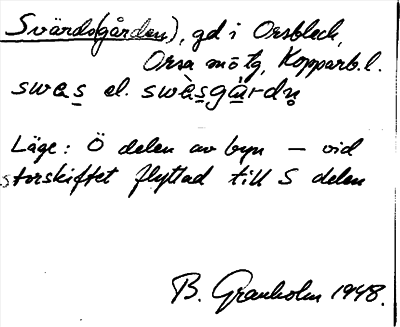 Svärds(gården), gd i Orsbleck,
Orsa m ö tg, Kopparb. l.
swes̲ el. swès̲gà̲rdn̥
Läge: Ö delen av byn — vid
storskiftet flyttad till S delen
B. Granholm 1948.